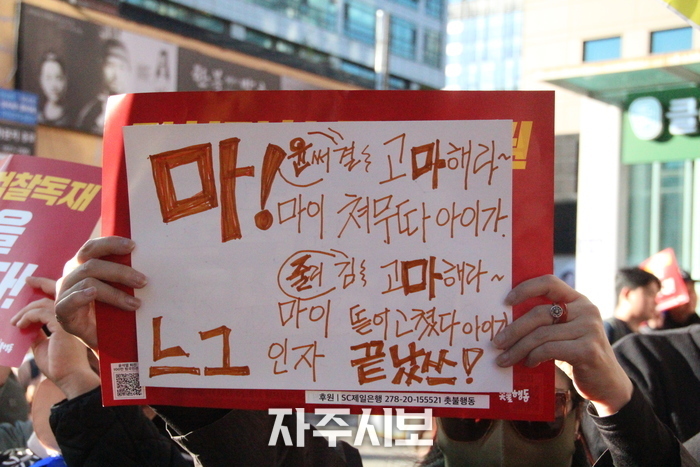 검찰독재
을
다!
마! 윤써결는 고마해라~
마이 쳐무따 아이가.
쥴리 김는 고마해라~
마이 뜯어고쳤다 아이가
느그 인자 끝났쓰!
후원 | SC제일은행 278-20-155521 촛불행동
촛불행동
자주시보